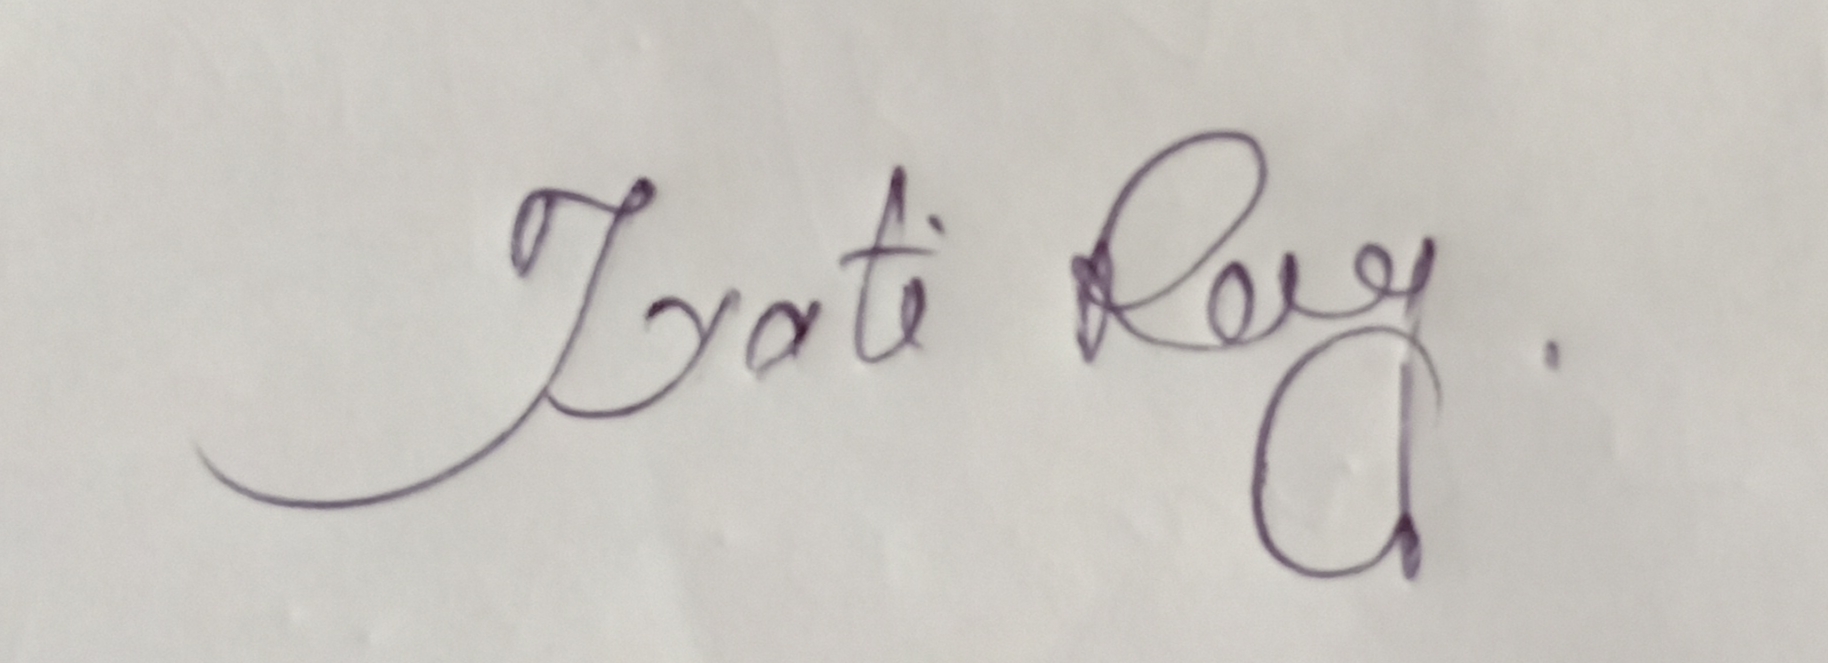 Jyoti Roy.